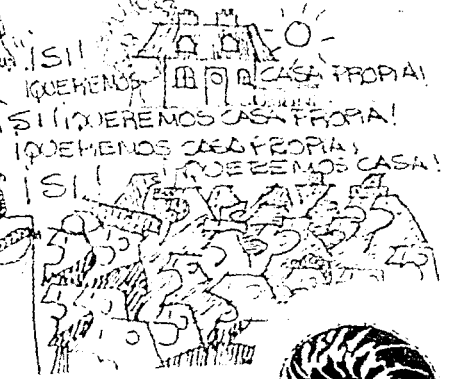 ¡SI!
¡QUEREMOS CASA PROPIA!
SI! ¡QUEREMOS CASA PROPIA!
¡QUEREMOS CASA PROPIA!
¡QUEREMOS CASA!
¡SI!